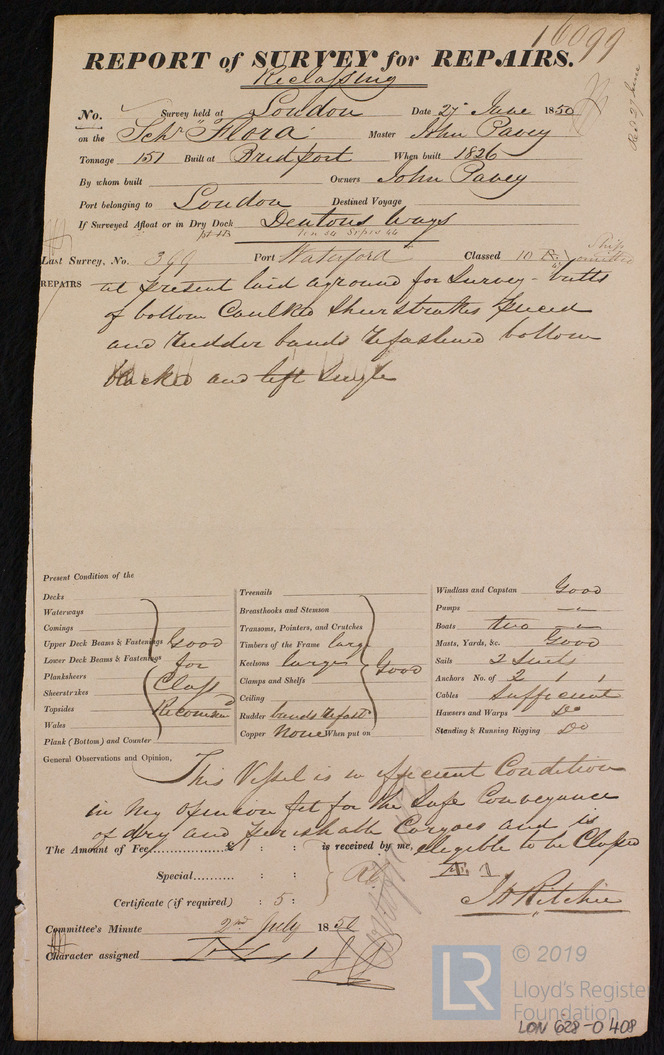 16099
REPORT of SURVEY for REPAIRS.
Reclassing
No. Survey held at London Date 27 June 1850
Rec 27 June
on the Schr "Flora" Master John Pavey
Tonnage 151 Built at Bridport When built 1826
By whom built Owners John Pavey
Port belonging to London Destined Voyage
If Surveyed Afloat or in Dry Dock Deatons Ways
Last Survey, No. 399 Port Waterford Classed 10
REPAIRS at present laid aground for Survey - butts
of bottom Caulked Sheerstrakes pieced
and rudder bands refastened bottom
blacked and left Single
Present Condition of the
Decks
Waterways
Comings
Upper Deck Beams & Fastenings Good
Lower Deck Beams & Fastenings for
Planksheers Class
Sheerstrakes
Topsides Recomend
Wales
Plank (Bottom) and Counter
Treenails
Breasthooks and Stemson
Transoms, Pointers, and Crutches
Timbers of the Frame large
Keelsons larger Good
Clamps and Shelfs
Ceiling
Rudder bands refast
Copper None When put on
Windlass and Capstan Good
Pumps "
Boats two "
Masts, Yards, &c. Good
Sails 2 Suits
Anchors No. of 2 1 1
Cables Sufficient
Hawsers and Warps Do
Standing & Running Rigging Do
General Observations and Opinion, This Vessel is in efficient Condition
in my opinion fit for the Safe Conveyance
of dry and perishable Cargoes and is
The Amount of Fee £1 : : is received by me, eligible to be Classed
Special : : Æ 1
Certificate (if required) : 5 : Jo Ritchie
Committee's Minute 2nd July 1850
Character assigned Æ 1
© 2019
LR
Lloyd's Register
Foundation
LON 628-0408